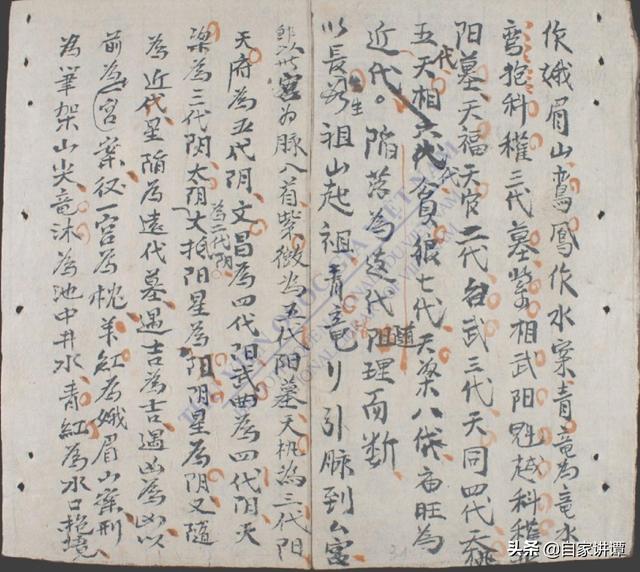 作娥眉山鸞鳳作水案青竜為竜水
鸾抱科權三代墓紫相武阳魁越科權
阳墓天福天官二代台武三代天同四代天機
五代天相六代貪狼七代天梁八代庙旺為
近代。陷落為遠代阻隨理而断
以長生祖山起祖青竜引脉到公宮
宮為脉入首紫微為五代阳墓天机為三代阳
天府為五代阴文昌為四代阳武曲為四代阴天
梁為三代阴太阴為二代阴大抵阳星為阳阴星為阴又隨
為近代星陷為遠代墓遇吉為吉遇凶為凶以
前為宮案後一宮為枕羊紅為娥眉山案刑
為筆架山尖竜沐為池中井水青紅為水口抱境
THƯ VIỆN QUỐC GIA VIỆT NAM
NATIONAL LIBRARY OF VIETNAM
头条 @自家讲谭